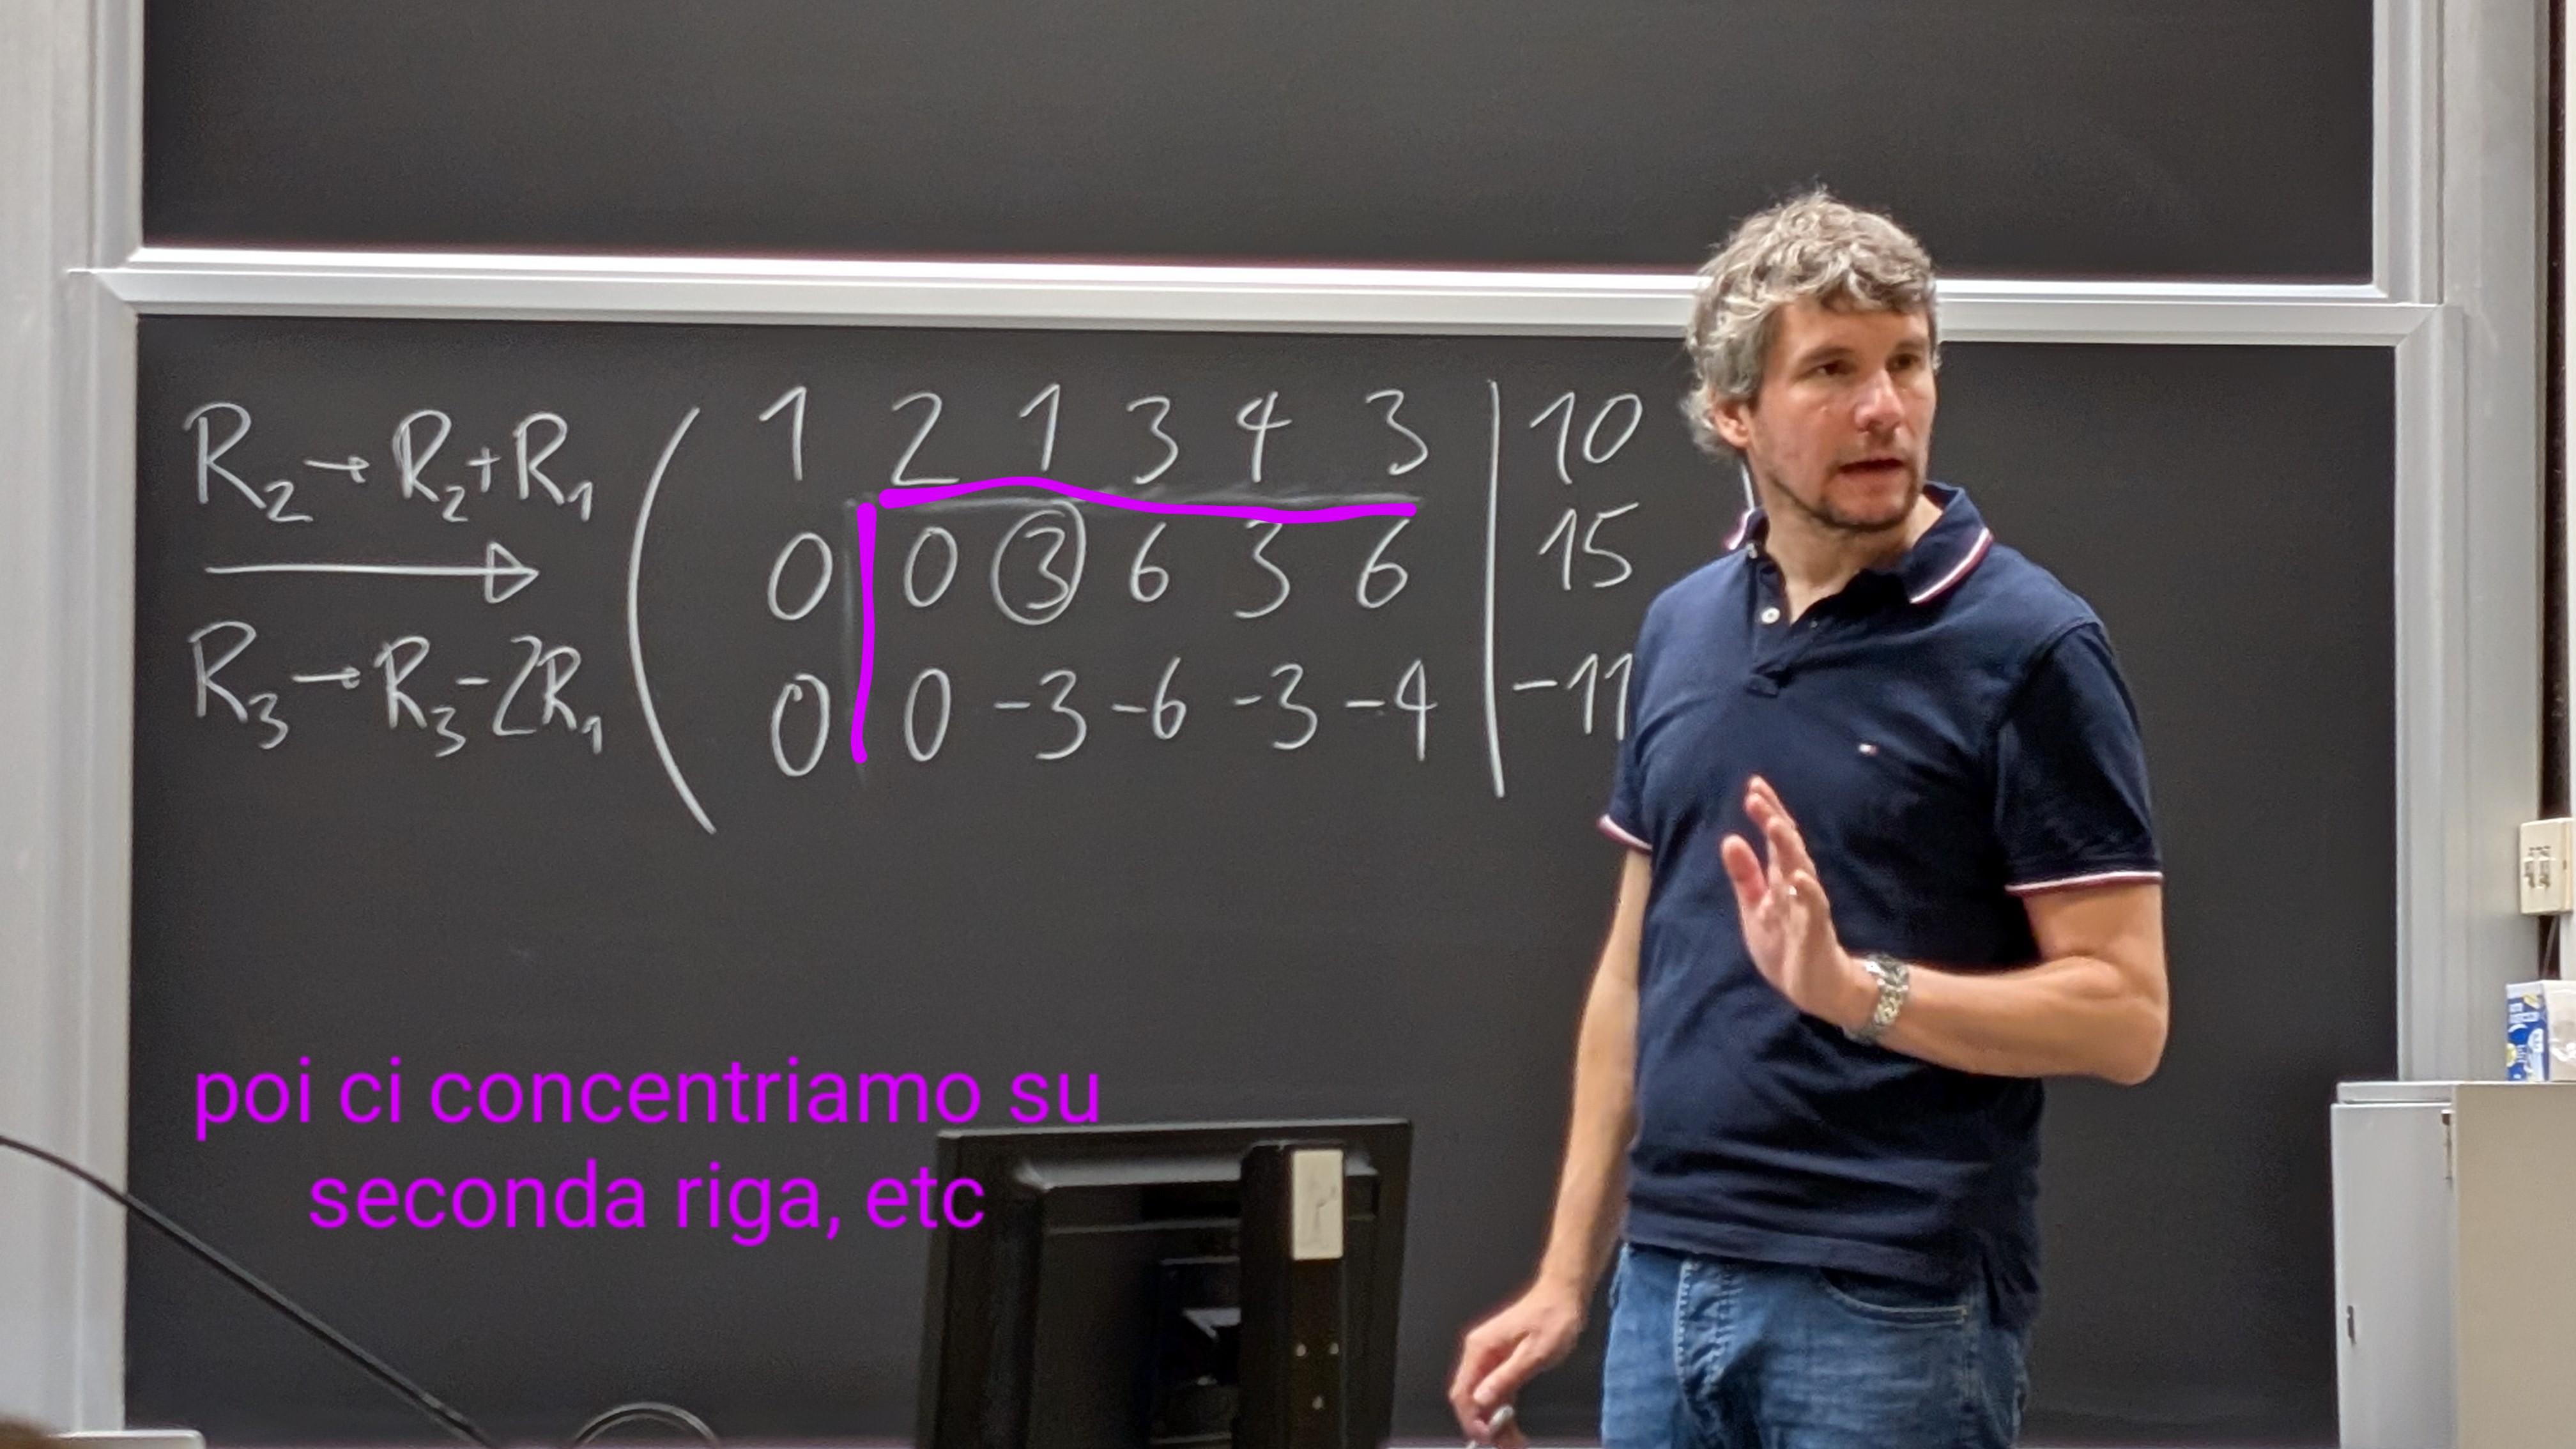 R₂ → R₂+R₁
R₃ → R₃-2R₁
( 1 2 1 3 4 3 | 10
0 0 3 6 3 6 | 15
0 0 -3 -6 -3 -4 | -11
poi ci concentriamo su
seconda riga, etc